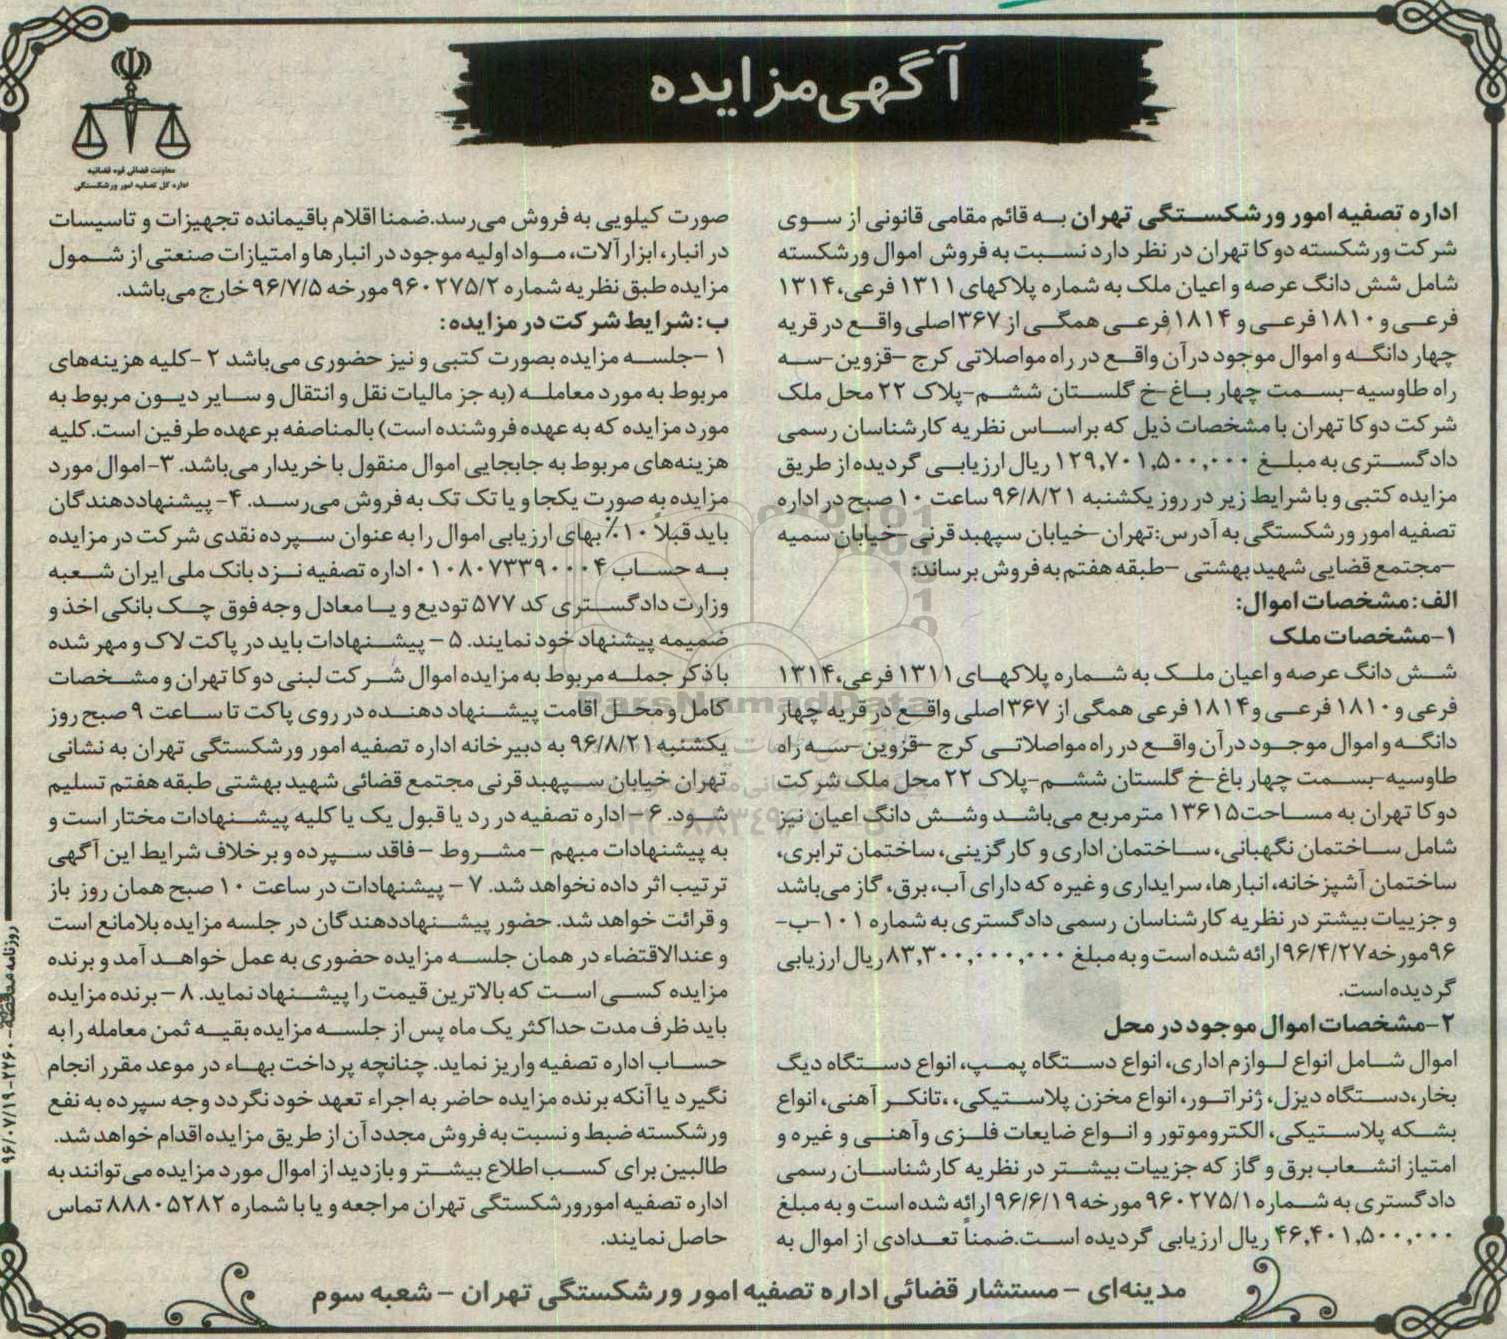 آگهی مزایده
معاونت قضائی قوه قضائیه
اداره کل تصفیه امور ورشکستگی
اداره تصفیه امور ورشکستگی تهران به قائم مقامی قانونی از سوی
شرکت ورشکسته دوکا تهران در نظر دارد نسبت به فروش اموال ورشکسته
شامل شش دانگ عرصه و اعیان ملک به شماره پلاکهای ۱۳۱۱ فرعی، ۱۳۱۴
فرعی و ۱۸۱۰ فرعی و ۱۸۱۴ فرعی همگی از ۳۶۷ اصلی واقع در قریه
چهار دانگه و اموال موجود در آن واقع در راه مواصلاتی کرج –قزوین–سه
راه طاوسیه–بسمت چهار باغ–خ گلستان ششم–پلاک ۲۲ محل ملک
شرکت دوکا تهران با مشخصات ذیل که براساس نظریه کارشناسان رسمی
دادگستری به مبلغ ۱۲۹,۷۰۱,۵۰۰,۰۰۰ ریال ارزیابی گردیده از طریق
مزایده کتبی و با شرایط زیر در روز یکشنبه ۹۶/۸/۲۱ ساعت ۱۰ صبح در اداره
تصفیه امور ورشکستگی به آدرس:تهران –خیابان سپهبد قرنی –خیابان سمیه
–مجتمع قضایی شهید بهشتی –طبقه هفتم به فروش برساند:
الف: مشخصات اموال:
۱–مشخصات ملک
شش دانگ عرصه و اعیان ملک به شماره پلاکهای ۱۳۱۱ فرعی، ۱۳۱۴
فرعی و ۱۸۱۰ فرعی و ۱۸۱۴ فرعی همگی از ۳۶۷ اصلی واقع در قریه چهار
دانگه و اموال موجود در آن واقع در راه مواصلاتی کرج –قزوین–سه راه
طاوسیه–بسمت چهار باغ–خ گلستان ششم–پلاک ۲۲ محل ملک شرکت
دوکا تهران به مساحت ۱۳۶۱۵ مترمربع می‌باشد وشش دانگ اعیان نیز
شامل ساختمان نگهبانی، ساختمان اداری و کارگزینی، ساختمان ترابری،
ساختمان آشپزخانه، انبارها، سرایداری و غیره که دارای آب، برق، گاز می‌باشد
و جزییات بیشتر در نظریه کارشناسان رسمی دادگستری به شماره ۱۰۱–ب–
۹۶ مورخه ۹۶/۴/۲۷ ارائه شده است و به مبلغ ۸۳,۳۰۰,۰۰۰,۰۰۰ ریال ارزیابی
گردیده است.
۲–مشخصات اموال موجود در محل
اموال شامل انواع لوازم اداری، انواع دستگاه پمپ، انواع دستگاه دیگ
بخار، دستگاه دیزل، ژنراتور، انواع مخزن پلاستیکی، ،تانکر آهنی، انواع
بشکه پلاستیکی، الکتروموتور و انواع ضایعات فلزی وآهنی و غیره و
امتیاز انشعاب برق و گاز که جزییات بیشتر در نظریه کارشناسان رسمی
دادگستری به شماره ۹۶۰۲۷۵/۱ مورخه ۹۶/۶/۱۹ ارائه شده است و به مبلغ
۴۶,۴۰۱,۵۰۰,۰۰۰ ریال ارزیابی گردیده است.ضمناً تعدادی از اموال به
صورت کیلویی به فروش می‌رسد.ضمنا اقلام باقیمانده تجهیزات و تاسیسات
در انبار، ابزارآلات، مواد اولیه موجود در انبارها و امتیازات صنعتی از شمول
مزایده طبق نظریه شماره ۹۶۰۲۷۵/۲ مورخه ۹۶/۷/۵ خارج می‌باشد.
ب: شرایط شرکت در مزایده:
۱ –جلسه مزایده بصورت کتبی و نیز حضوری می‌باشد ۲ –کلیه هزینه‌های
مربوط به مورد معامله (به جز مالیات نقل و انتقال و سایر دیون مربوط به
مورد مزایده که به عهده فروشنده است) بالمناصفه برعهده طرفین است.کلیه
هزینه‌های مربوط به جابجایی اموال منقول با خریدار می‌باشد. ۳–اموال مورد
مزایده به صورت یکجا و یا تک تک به فروش می‌رسد. ۴– پیشنهاددهندگان
باید قبلاً ۱۰٪ بهای ارزیابی اموال را به عنوان سپرده نقدی شرکت در مزایده
به حساب ۰۱۰۸۰۷۳۳۹۰۰۰۴ اداره تصفیه نزد بانک ملی ایران شعبه
وزارت دادگستری کد ۵۷۷ تودیع و یا معادل وجه فوق چک بانکی اخذ و
ضمیمه پیشنهاد خود نمایند. ۵ – پیشنهادات باید در پاکت لاک و مهر شده
با ذکر جمله مربوط به مزایده اموال شرکت لبنی دوکا تهران و مشخصات
کامل و محل اقامت پیشنهاد دهنده در روی پاکت تا ساعت ۹ صبح روز
یکشنبه ۹۶/۸/۲۱ به دبیرخانه اداره تصفیه امور ورشکستگی تهران به نشانی
تهران خیابان سپهبد قرنی مجتمع قضائی شهید بهشتی طبقه هفتم تسلیم
شود. ۶ – اداره تصفیه در رد یا قبول یک یا کلیه پیشنهادات مختار است و
به پیشنهادات مبهم – مشروط – فاقد سپرده و برخلاف شرایط این آگهی
ترتیب اثر داده نخواهد شد. ۷ – پیشنهادات در ساعت ۱۰ صبح همان روز باز
و قرائت خواهد شد. حضور پیشنهاددهندگان در جلسه مزایده بلامانع است
و عندالاقتضاء در همان جلسه مزایده حضوری به عمل خواهد آمد و برنده
مزایده کسی است که بالاترین قیمت را پیشنهاد نماید. ۸ – برنده مزایده
باید ظرف مدت حداکثر یک ماه پس از جلسه مزایده بقیه ثمن معامله را به
حساب اداره تصفیه واریز نماید. چنانچه پرداخت بهاء در موعد مقرر انجام
نگیرد یا آنکه برنده مزایده حاضر به اجراء تعهد خود نگردد وجه سپرده به نفع
ورشکسته ضبط و نسبت به فروش مجدد آن از طریق مزایده اقدام خواهد شد.
طالبین برای کسب اطلاع بیشتر و بازدید از اموال مورد مزایده می‌توانند به
اداره تصفیه امورورشکستگی تهران مراجعه و یا با شماره ۸۸۸۰۵۲۸۲ تماس
حاصل نمایند.
مدینه‌ای – مستشار قضائی اداره تصفیه امور ورشکستگی تهران – شعبه سوم
ParsNamadData